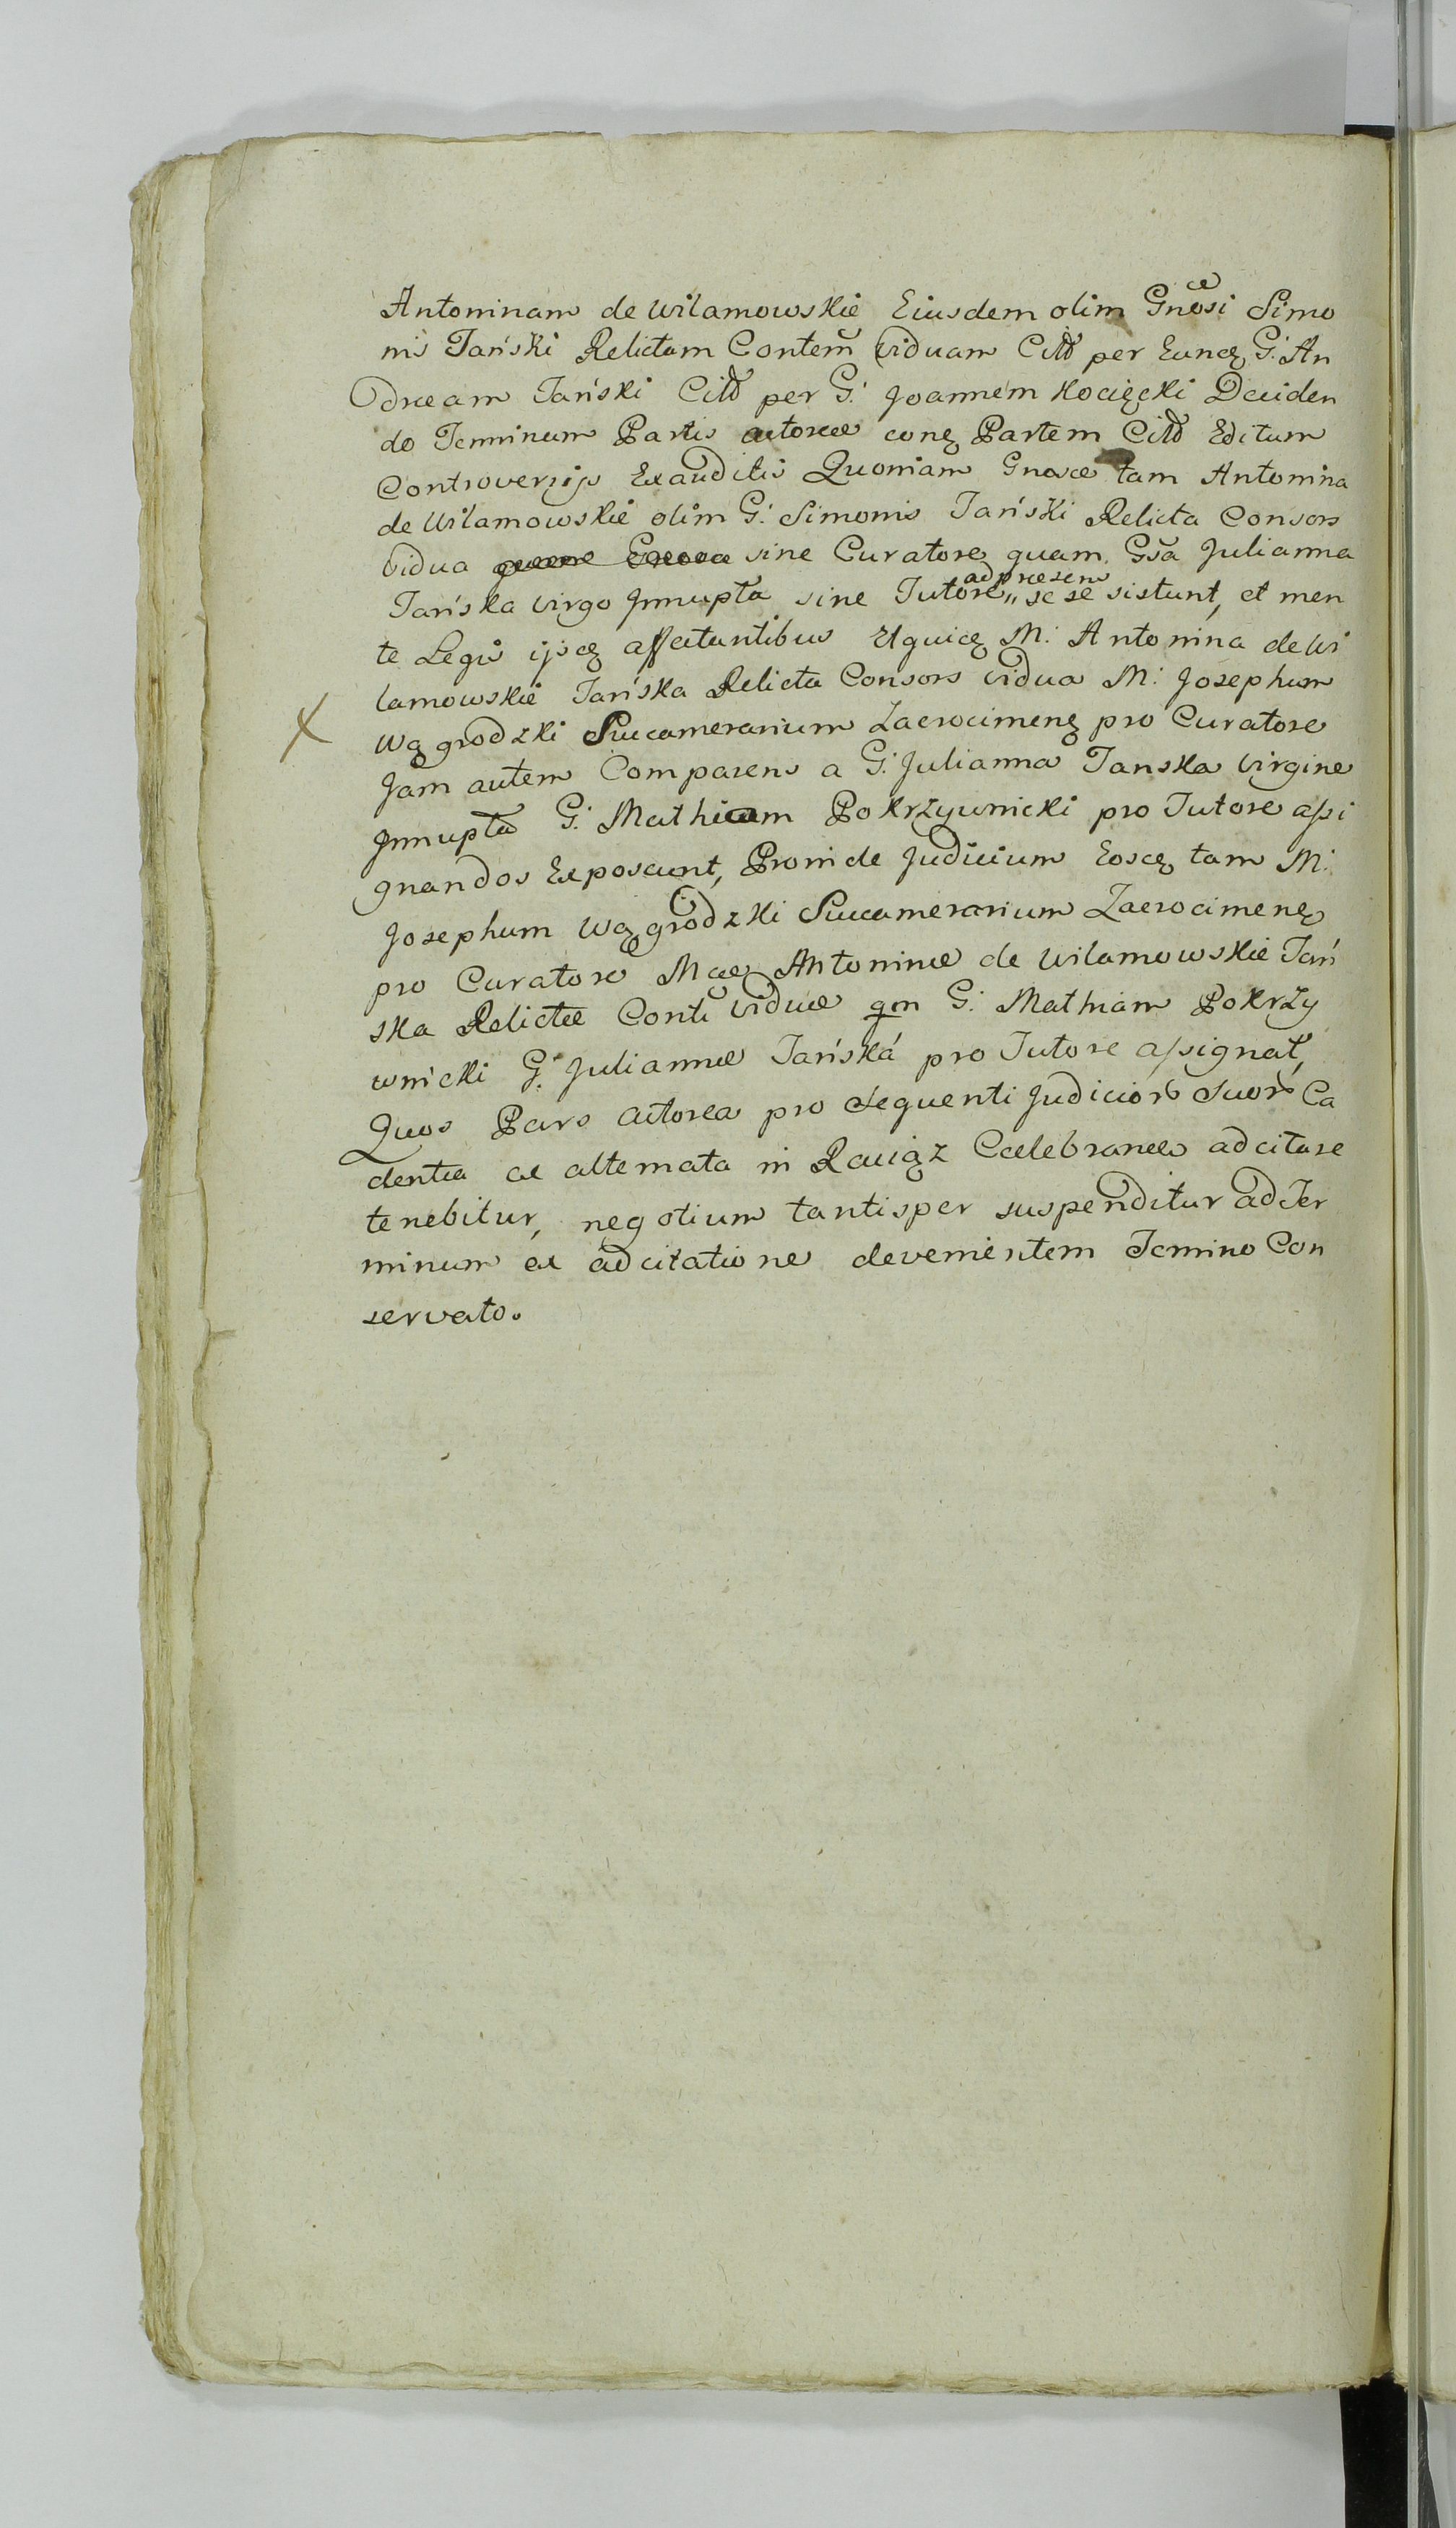 Antoninam de Wilamowskie Eiusdem olim Gnosi Simo
nis Tański Relictam Contem Viduam Citt per Eunq G: An
dream Tański Citt per G: Joannem Kocięcki Deciden
do Terminum Partis actoreæ conq Partem Citt Editum
Controversijs Exauditis Quoniam Gnosæ tam Antonina
de Wilamowskie olim G: Simonis Tański Relicta Consors
Vidua sine Curatore quam Gsa Julianna
Tańska Virgo Innupta sine Tutore ad præsens se se sistunt, et men
te Legũ ijsq affectantibus Utquiq M: Antonina de Wi
lamowskie Tańska Relicta Consors Vidua M: Josephum
Wągrodzki Succamerarium Zacrocimenq pro Curatore
Jam autem Comparens a G: Julianna Tanska Virgine
Innupta G: Mathiam Pokrzywnicki pro Tutore assi
gnandos Exposcunt, Proinde Judicium Eosq tam M:
Josephum Wągrodzki Succamerarium Zacrocimenq
pro Curatore Mææ Antoninæ de Wilamowskie Tań
ska Relictæ Conti Viduæ qm G: Mathiam Pokrzy
wnicki G: Juliannæ Tańska pro Tutore assignat,
Quos Pars actorea pro sequenti Judicior Suor Ca
dentia ex alternata in Raciąz Cælebranda adcitare
tenebitur, negotium tantisper suspenditur ad Ter
minum ex adcitatione devenientem Termino Con
servato.